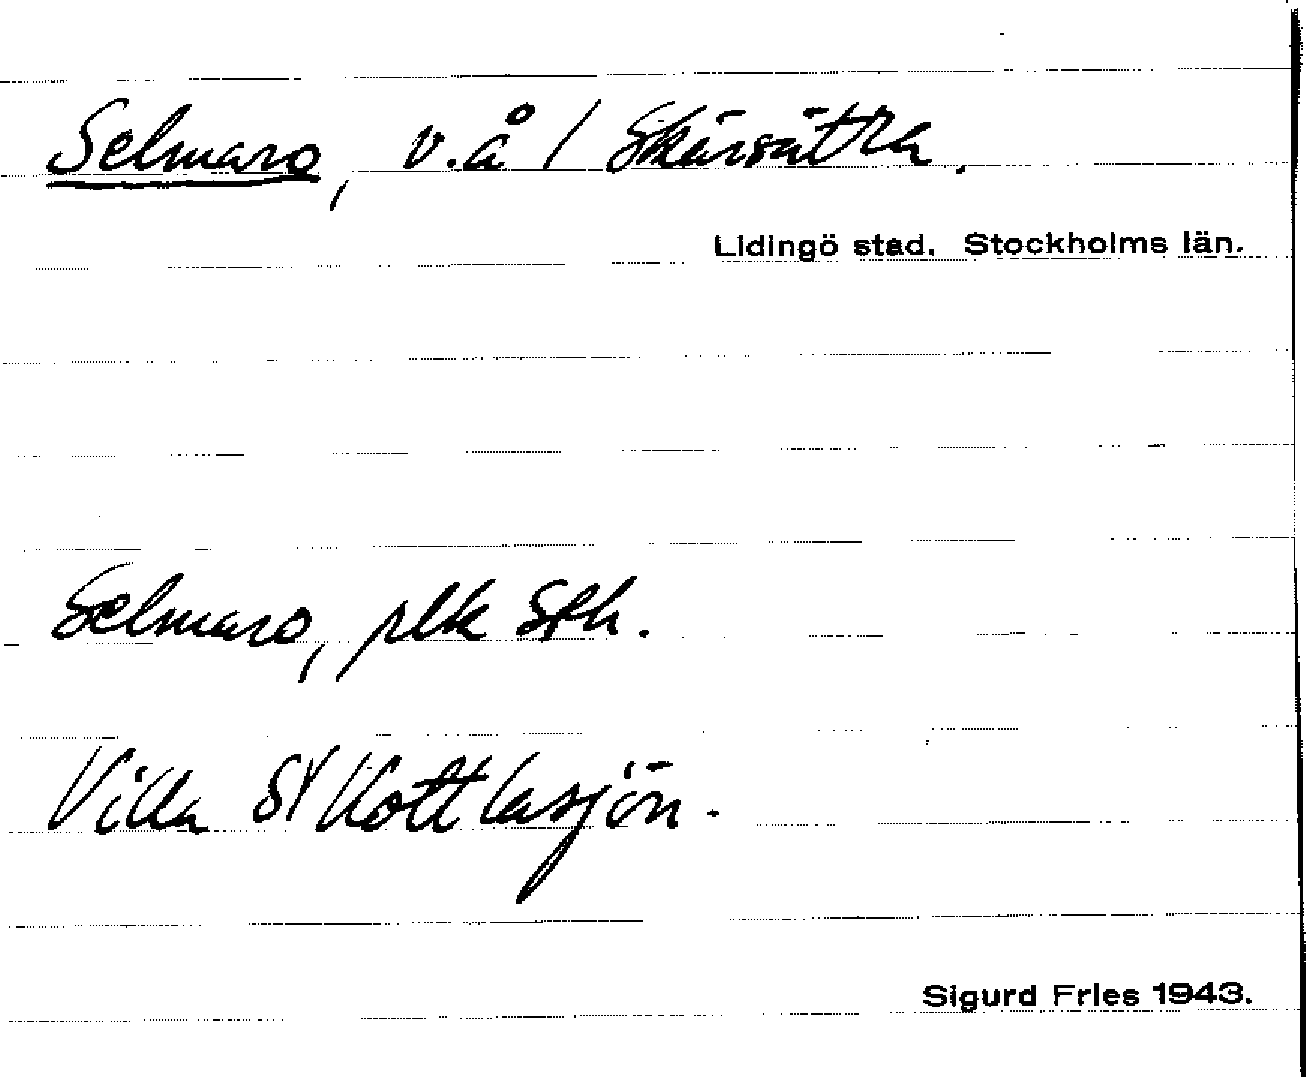 Selmaro, v.å / Skärsätra.
Lidingö stad. Stockholms län.
Selmaro, plk Sth.
Villa S/ Kottlasjön.
Sigurd Fries 1943.